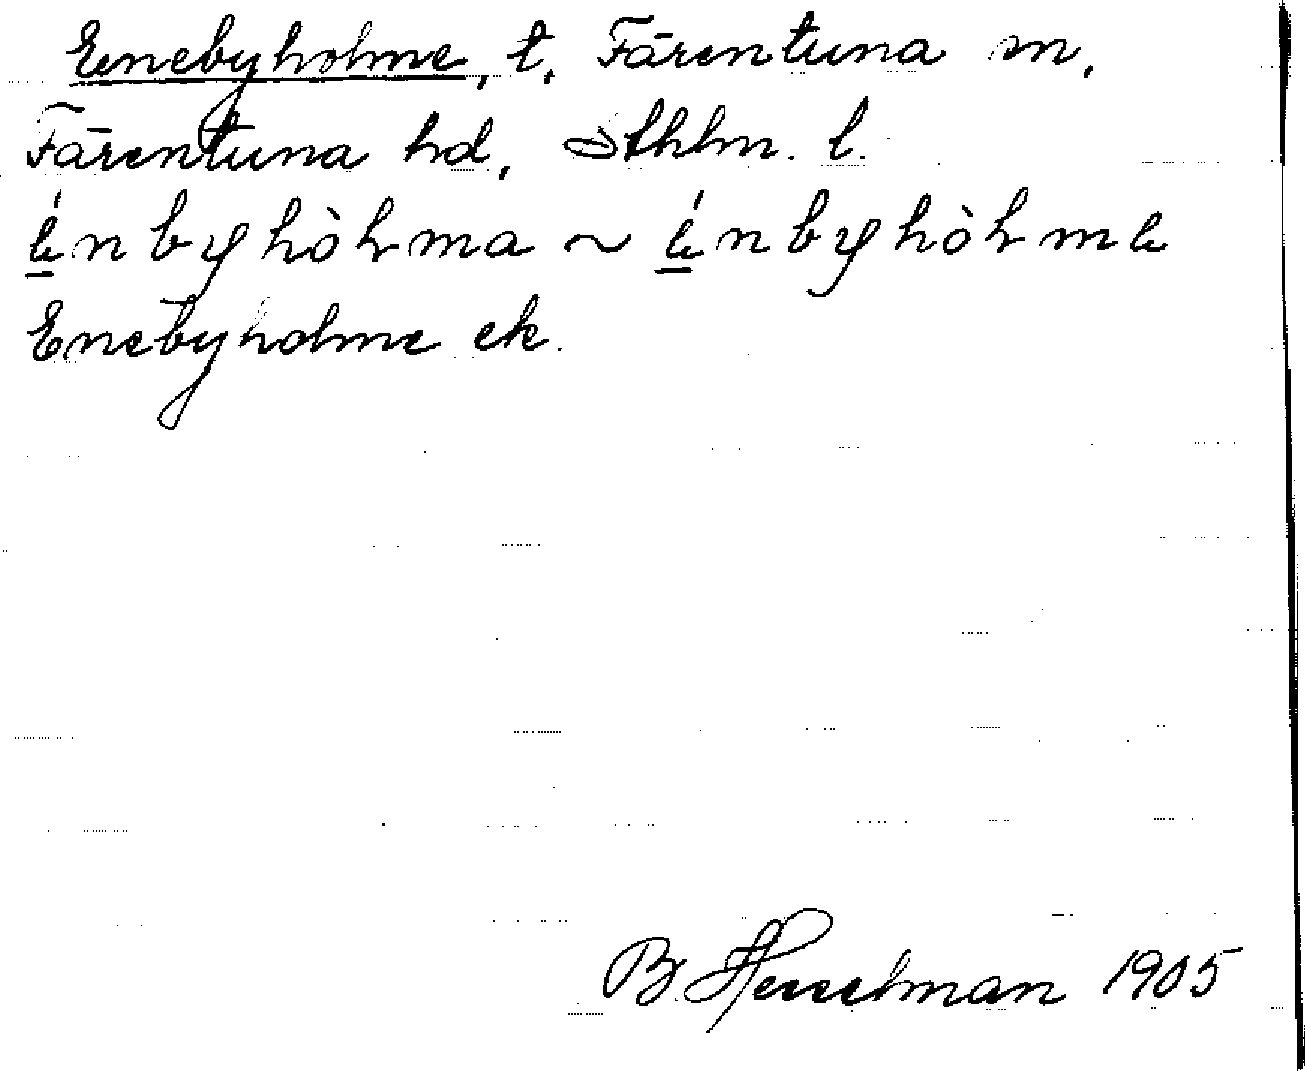 Enebyholme, t. Färentuna sn,
Färentuna hd, Sthlm. l.
énbyhòlma ~ énbyhòlme
Enebyholme ek.
B. Hesselman 1905